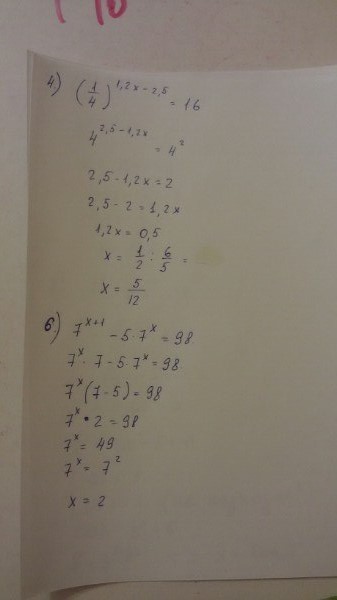 4) (1/4)^(1,2x-2,5) = 16
4^(2,5-1,2x) = 4^2
2,5-1,2x=2
2,5-2=1,2x
1,2x=0,5
x= 1/2 : 6/5 =
x= 5/12
6) 7^(x+1) -5·7^x=98
7^x·7-5·7^x=98
7^x(7-5)=98
7^x·2=98
7^x=49
7^x=7^2
x=2